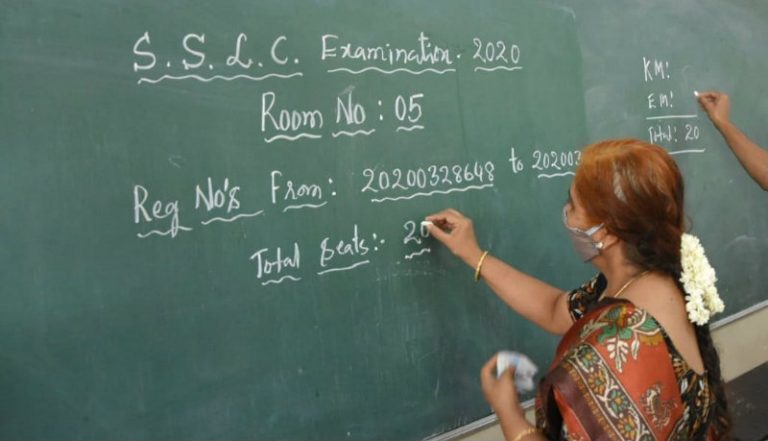 S.S.L.C. Examination. 2020
Room No : 05
Reg No's From : 20200328648 to 202003
Total Seats :- 20
KM:
EM:
Total: 20